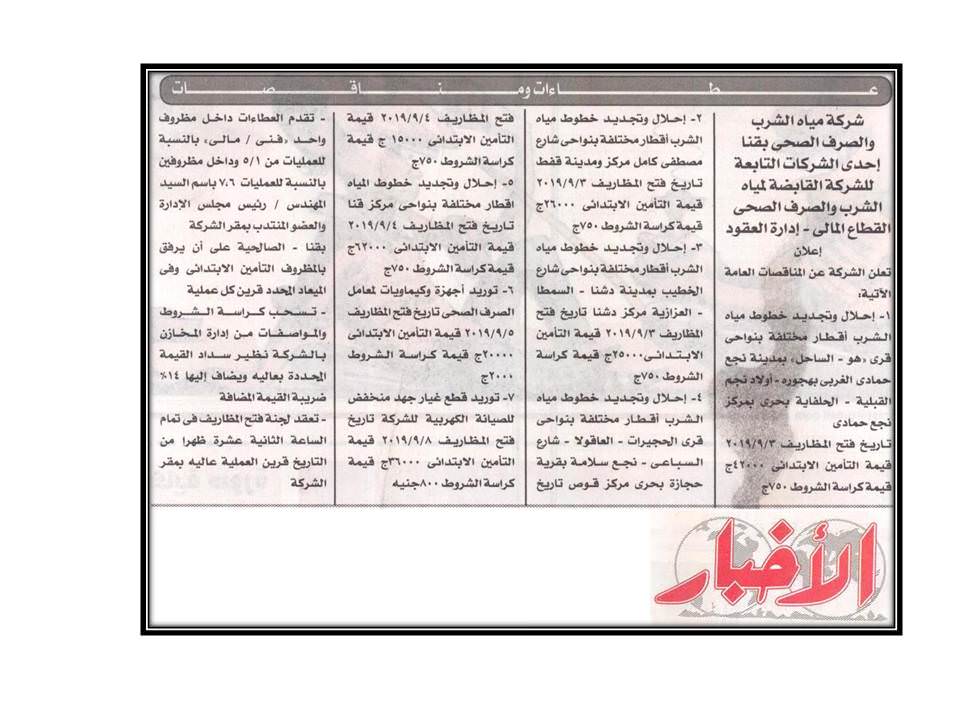 عطاءات ومناقصات
شركة مياه الشرب
والصرف الصحى بقنا
إحدى الشركات التابعة
للشركة القابضة لمياه
الشرب والصرف الصحى
القطاع المالى - إدارة العقود
إعلان
تعلن الشركة عن المناقصات العامة
الآتية:
١- إحلال وتجديد خطوط مياه
الشرب أقطار مختلفة بنواحى
قرى «هو - الساحل» بمدينة نجع
حمادى الغربى بهجوره - أولاد نجم
القبلية - الحلفاية بحرى بمركز
نجع حمادى
تاريخ فتح المظاريف ٢٠١٩/٩/٣
قيمة التأمين الابتدائى ٤٢٠٠٠ج
قيمة كراسة الشروط ٧٥٠ج
٢- إحلال وتجديد خطوط مياه
الشرب أقطار مختلفة بنواحى شارع
مصطفى كامل مركز ومدينة قفط
تاريخ فتح المظاريف ٢٠١٩/٩/٣
قيمة التأمين الابتدائى ٢٦٠٠٠ج
قيمة كراسة الشروط ٧٥٠ج
٣- إحلال وتجديد خطوط مياه
الشرب أقطار مختلفة بنواحى شارع
الخطيب بمدينة دشنا - السمطا
- العزازية مركز دشنا تاريخ فتح
المظاريف ٢٠١٩/٩/٣ قيمة التأمين
الابتدائى٢٥٠٠٠ج قيمة كراسة
الشروط ٧٥٠ج
٤- إحلال وتجديد خطوط مياه
الشرب أقطار مختلفة بنواحى
قرى الحجيرات - العاقولا - شارع
السباعى - نجع سلامة بقرية
حجازة بحرى مركز قوص تاريخ
فتح المظاريف ٢٠١٩/٩/٤ قيمة
التأمين الابتدائى ١٥٠٠٠ ج قيمة
كراسة الشروط ٧٥٠ج
٥- إحلال وتجديد خطوط المياه
اقطار مختلفة بنواحى مركز قنا
تاريخ فتح المظاريف ٢٠١٩/٩/٤
قيمة التأمين الابتدائى ٦٢٠٠٠ج
قيمة كراسة الشروط ٧٥٠ج
٦- توريد أجهزة وكيماويات لمعامل
الصرف الصحى تاريخ فتح المظاريف
٢٠١٩/٩/٥ قيمة التأمين الابتدائى
٢٠٠٠٠ج قيمة كراسة الشروط
٢٠٠٠ج
٧- توريد قطع غيار جهد منخفض
للصيانة الكهربية للشركة تاريخ
فتح المظاريف ٢٠١٩/٩/٨ قيمة
التأمين الابتدائى ٣٦٠٠٠ج قيمة
كراسة الشروط ٨٠٠جنيه
- تقدم العطاءات داخل مظروف
واحد «فنى / مالى» بالنسبة
للعمليات من ٥/١ وداخل مظروفين
بالنسبة للعمليات ٧،٦ باسم السيد
المهندس / رئيس مجلس الإدارة
والعضو المنتدب بمقر الشركة
بقنا - الصالحية على أن يرفق
بالمظروف التأمين الابتدائى وفى
الميعاد المحدد قرين كل عملية
- تسحب كراسة الشروط
والمواصفات من إدارة المخازن
بالشركة نظير سداد القيمة
المحددة بعاليه ويضاف إليها ١٤%
ضريبة القيمة المضافة
- تعقد لجنة فتح المظاريف فى تمام
الساعة الثانية عشرة ظهرا من
التاريخ قرين العملية عاليه بمقر
الشركة
الأخبار